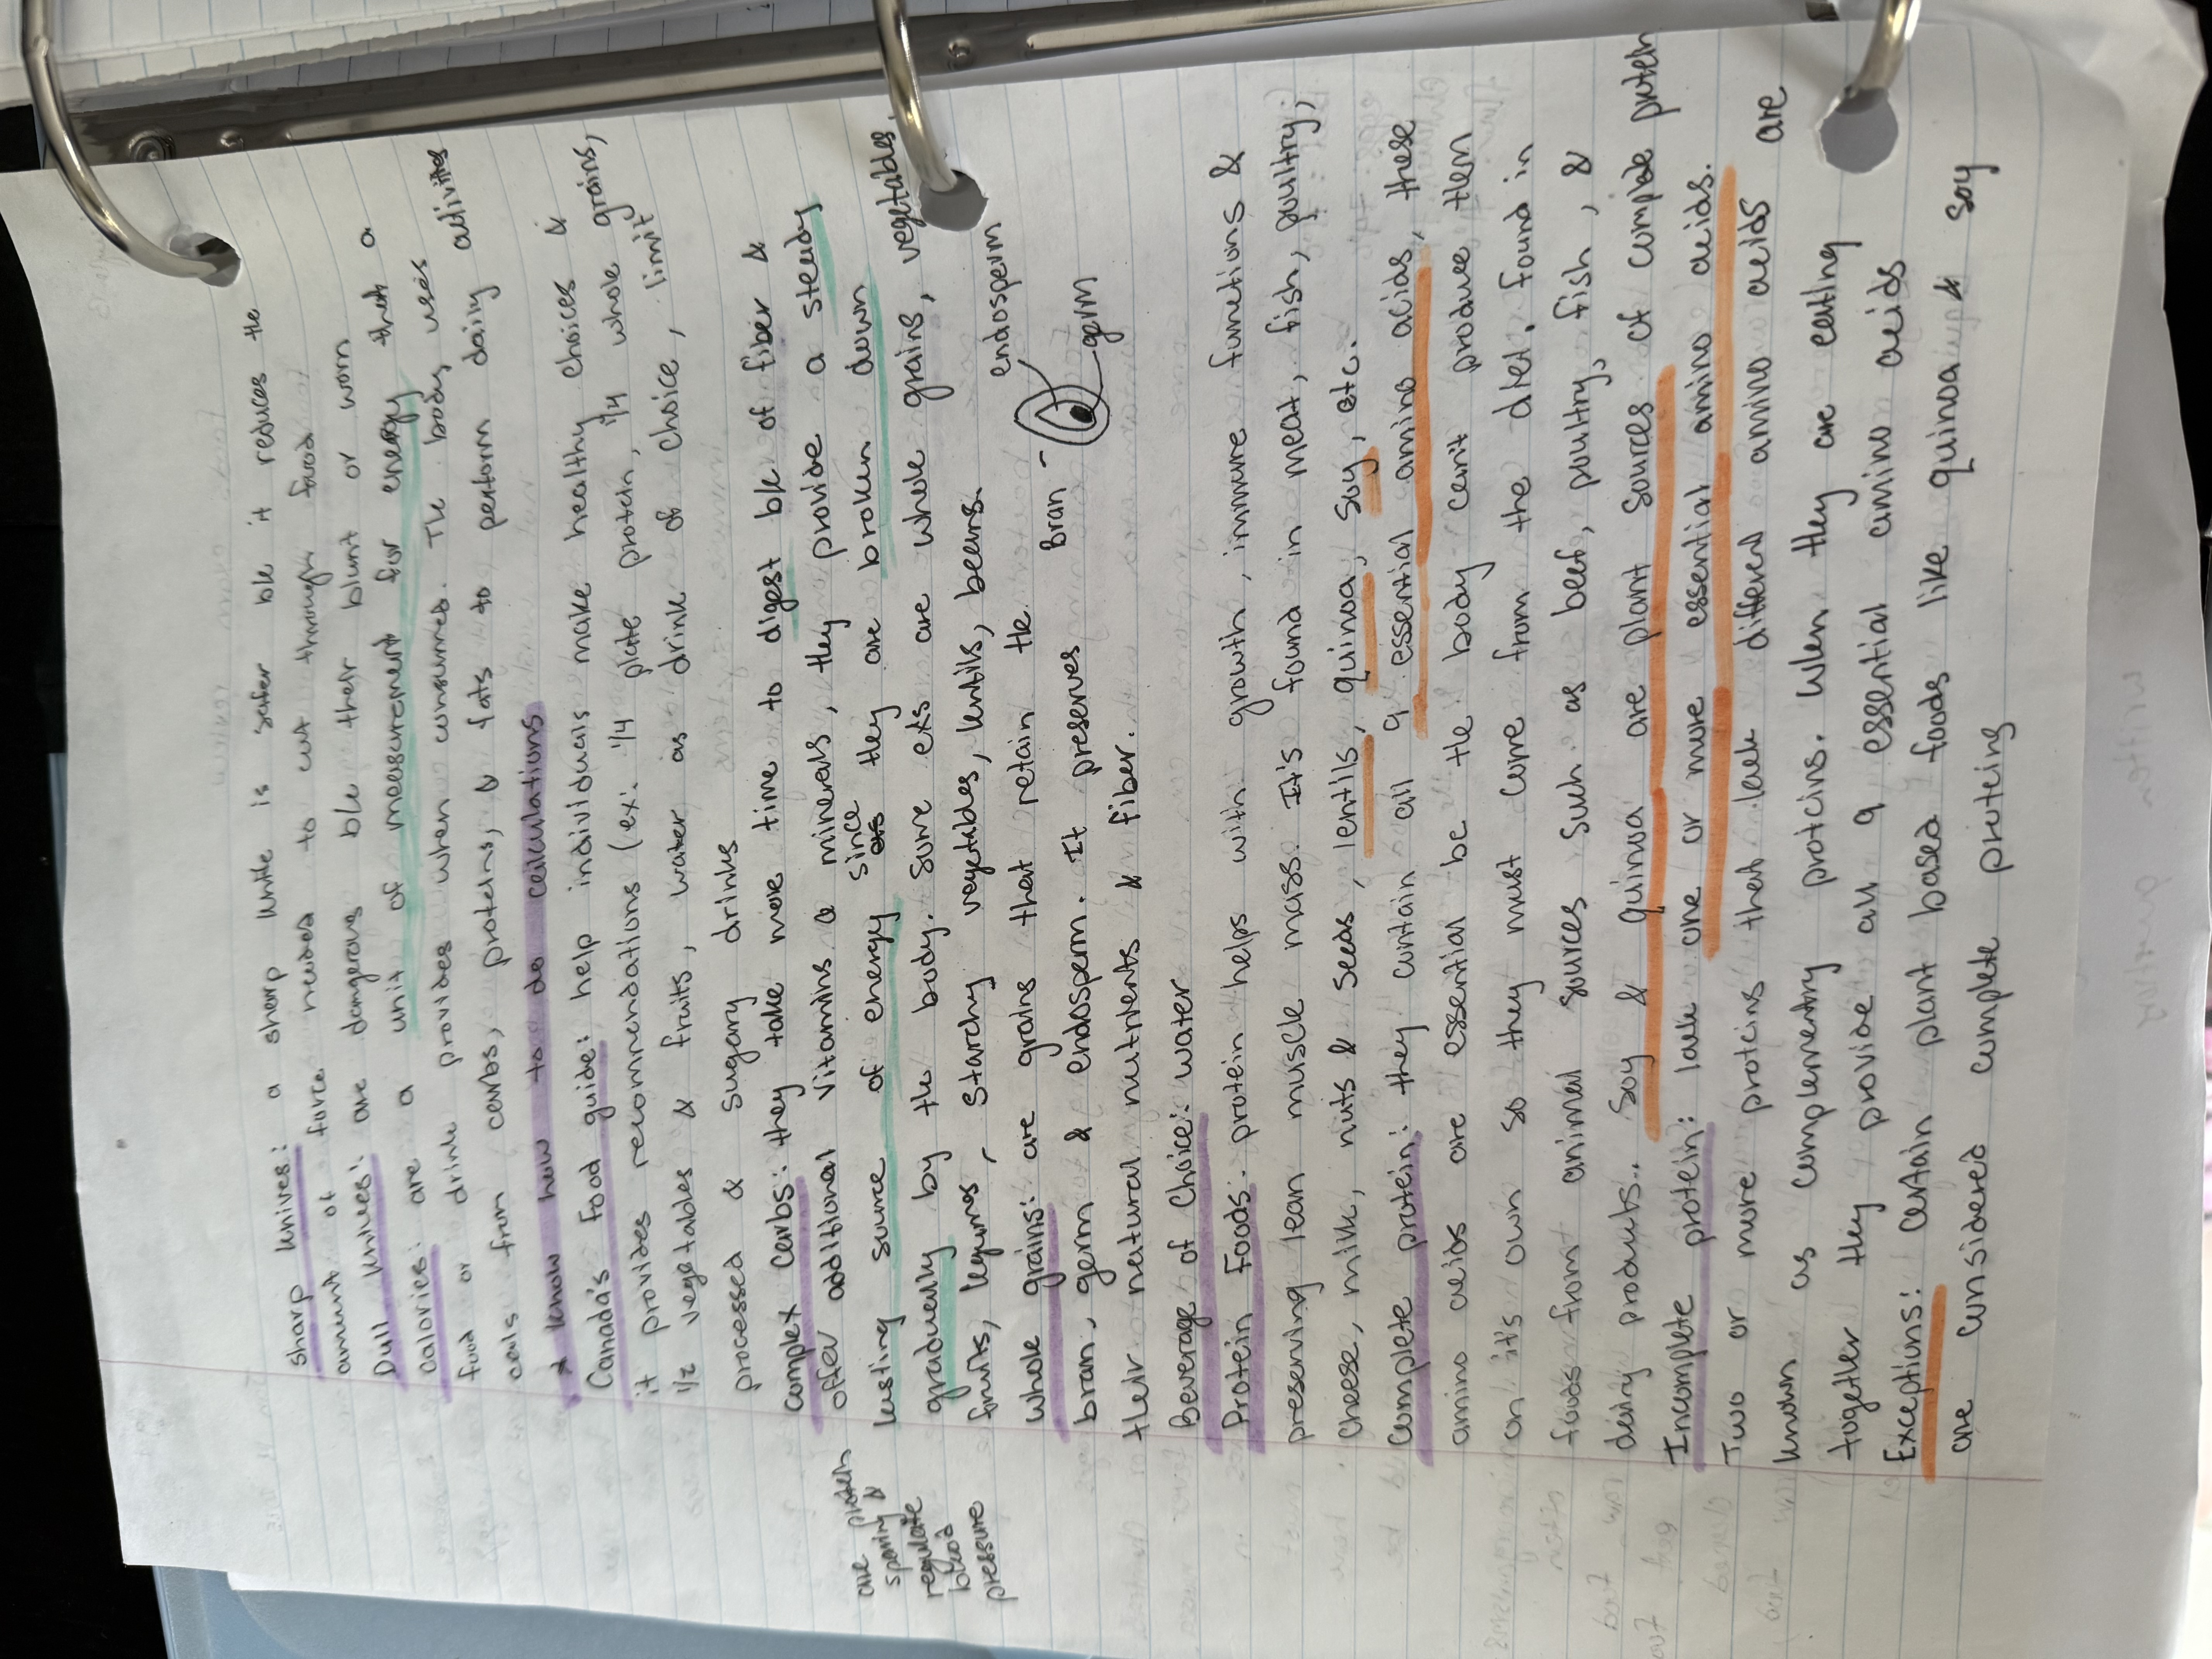 sharp knives: a sharp knife is safer b/c it reduces the
amount of force needed to cut through food
Dull knives: are dangerous b/c their blunt or worn
calories: are a unit of measurement for energy that a
food or drink provides when consumed. The body uses
cals from carbs, proteins, & fats to perform daily activities
* know how to do calculations
Canada's Food guide: help individuals make healthy choices &
it provides recommendations (ex: 1/4 plate protein, 1/4 whole grains,
1/2 vegetables & fruits, water as drink of choice, limit
processed & sugary drinks
complex carbs: they take more time to digest b/c of fiber &
offer additional vitamins & minerals, they provide a steady
lasting source of energy since they are broken down
gradually by the body. Some ex's are whole grains, vegetables,
fruits, legumes, starchy vegetables, lentils, beans.
are protein
sparing &
regulate
blood
pressure
whole grains: are grains that retain the
bran, germ & endosperm. It preserves
their natural nutrients & fiber.
endosperm
Bran
germ
Beverage of Choice: water
Protein Foods: protein helps with growth, immune functions &
preserving lean muscle mass. It's found in meat, fish, poultry,
cheese, milk, nuts & seeds, lentils, quinoa, soy, etc.
complete protein: they contain all 9 essential amino acids, these
amino acids are essential bc the body can't produce them
on it's own so they must come from the diet. Found in
foods from animal sources such as beef, poultry, fish, &
dairy products. Soy & quinoa are plant sources of complete protein
Incomplete protein: lack one or more essential amino acids.
Two or more proteins that lack different amino acids are
known as complementry proteins. When they are eating
together they provide all 9 essential amino acids
Exceptions: certain plant based foods like quinoa & soy
are considered complete proteins